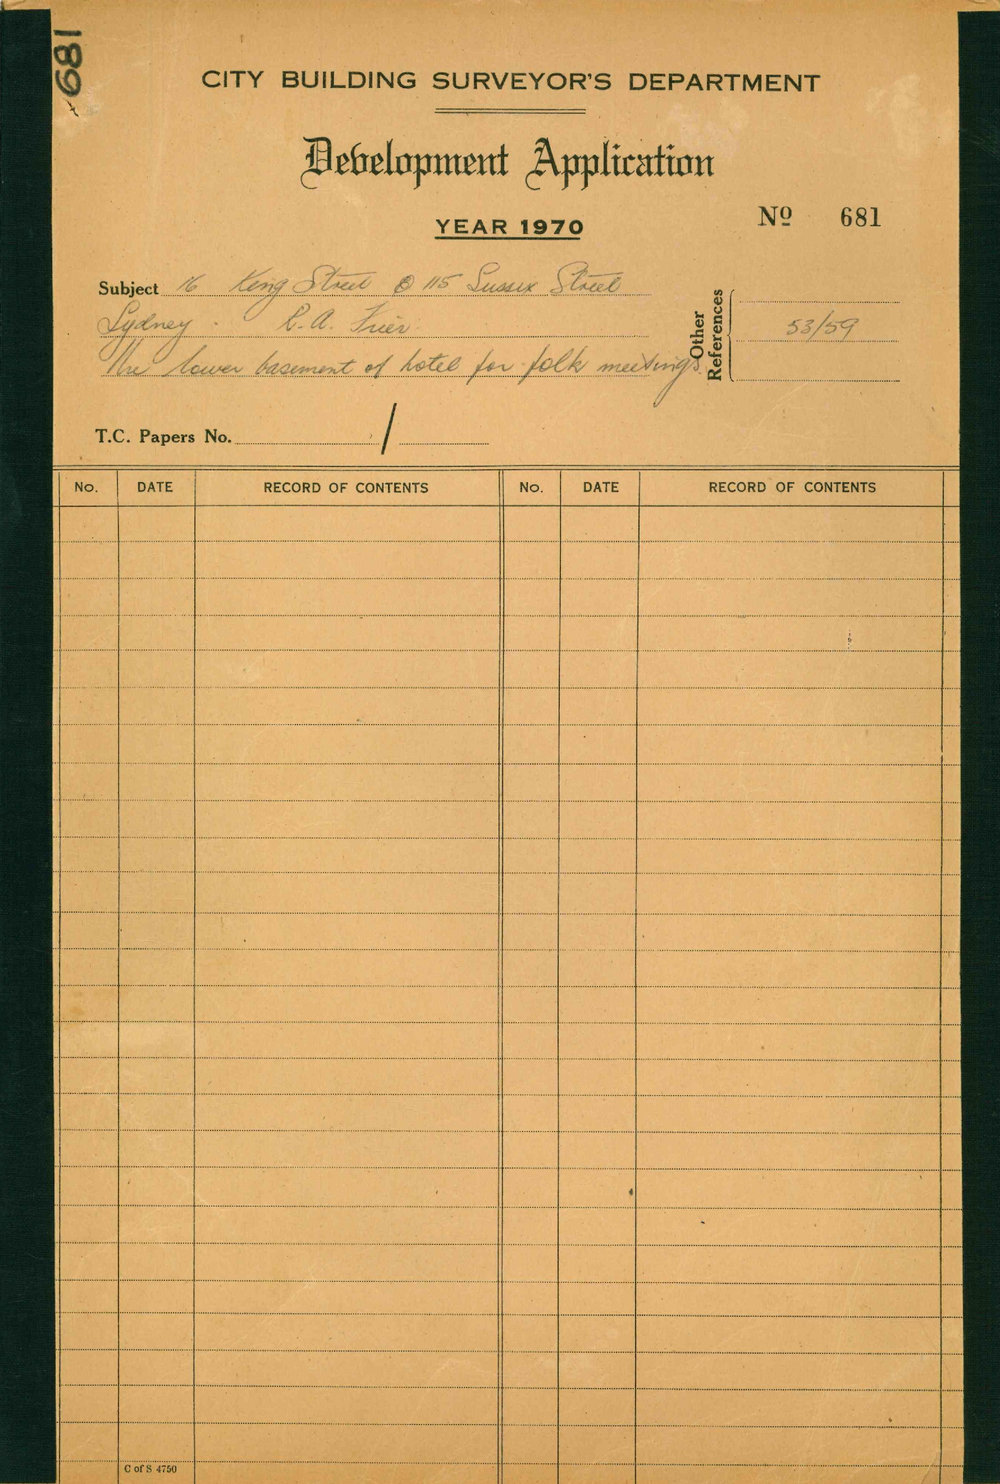 681
CITY BUILDING SURVEYOR'S DEPARTMENT
Development Application
YEAR 1970
Nº 681
Subject 16 King Street @ 115 Sussex Street
Sydney. R.A. Frier.
The lower basement of hotel for folk meetings.
Other References
53/59
T.C. Papers No. /
No. DATE RECORD OF CONTENTS No. DATE RECORD OF CONTENTS
C of S 4750